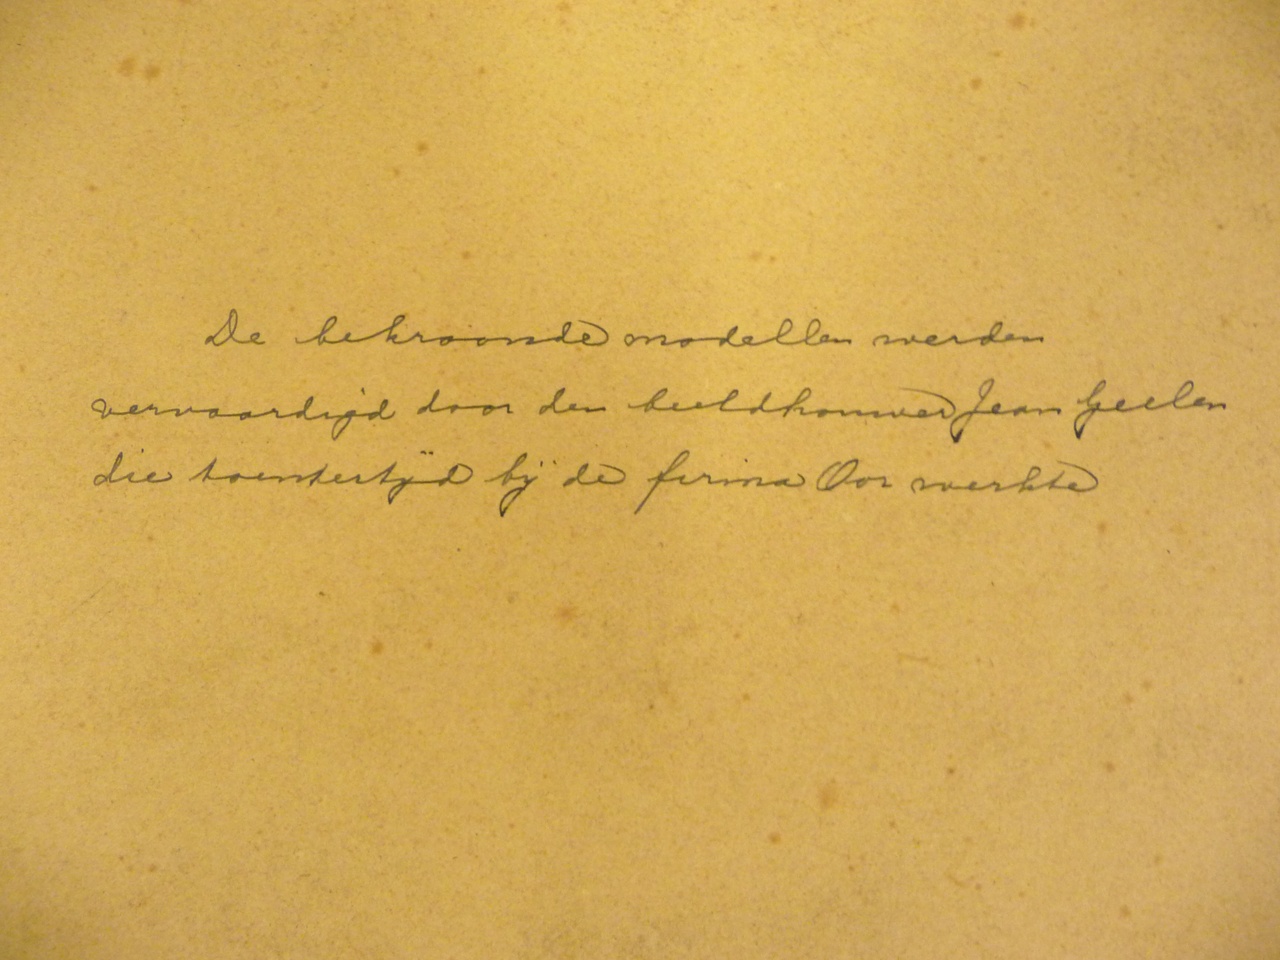 De bekroonde modellen werden
vervaardigd door den beeldhouwer Jean Geelen
die toentertijd bij de firma Oor werkte